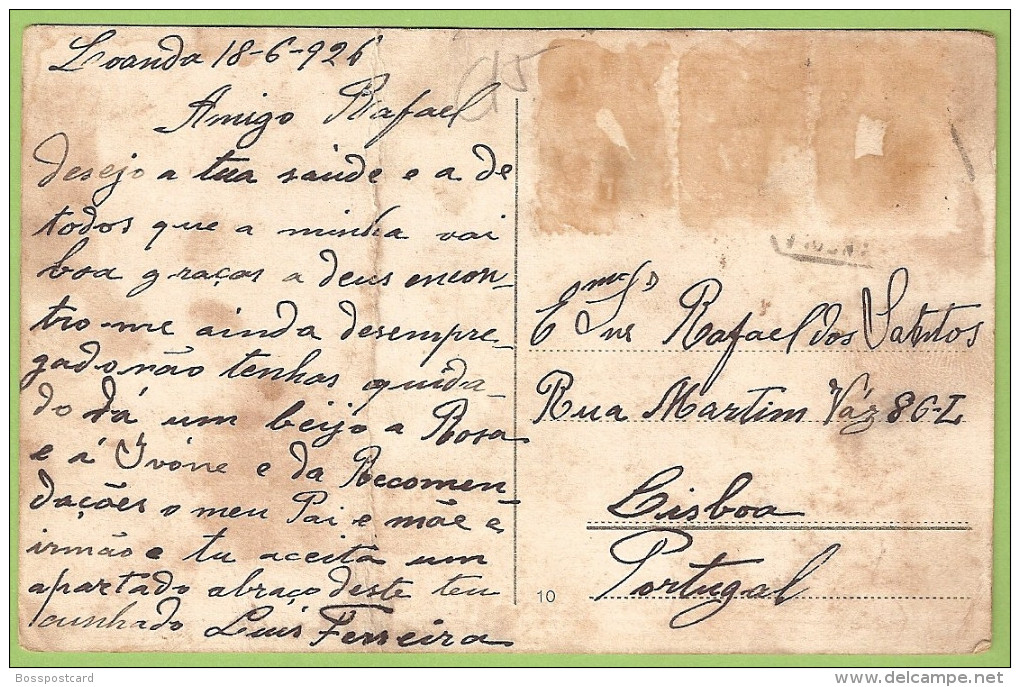 Loanda 18-6-926
Amigo Rafael
desejo a tua saúde e a de
todos que a minha vai
boa graças a deus encon-
tro-me ainda desempre-
gado não tenhas quida-
do dá um beijo a Rosa
e á Ivóne e da Recomen
dações o meu Pai e mãe e
irmão e tu aceita um
apartado abraço deste teu
cunhado Luis Ferreira
15
Emº Snr Rafael dos Santos
Rua Martim Váz 86-L
Lisboa
Portugal
10
Bosspostcard